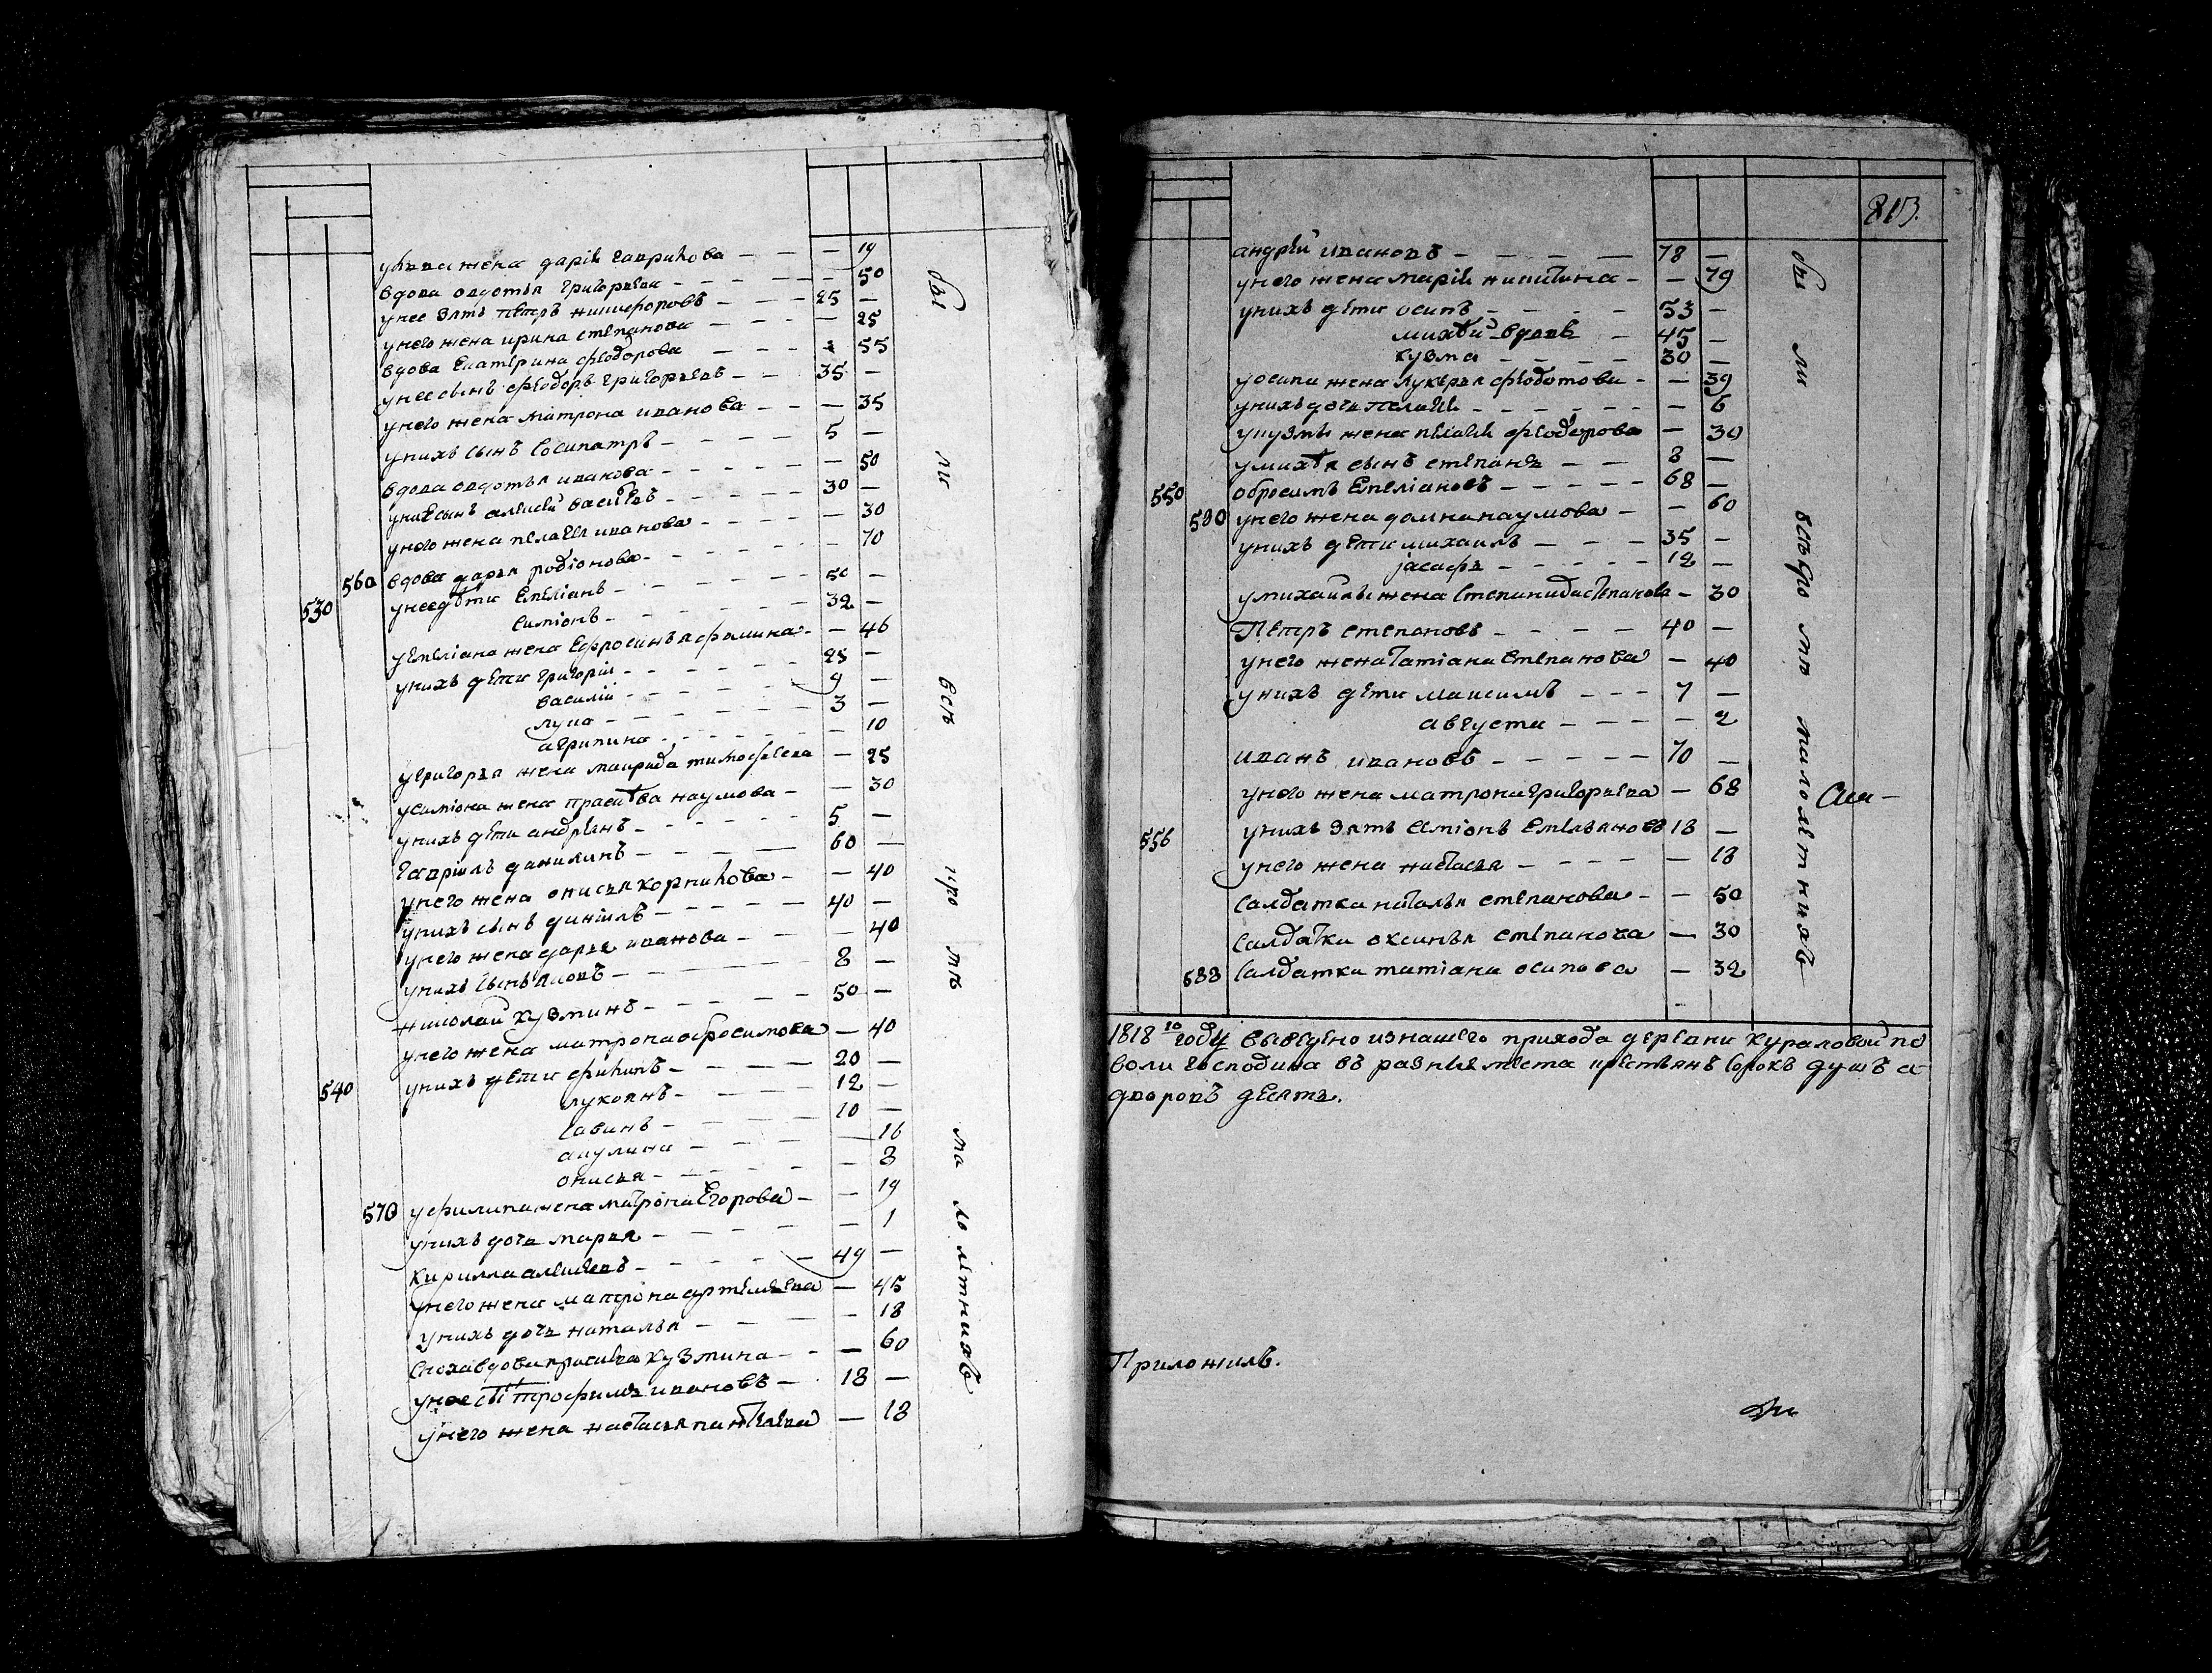 у жена дарія гаврилова — — — 19
вдова овдотья григорьева — — — 50
унее зять петръ никифоровъ — — — 25 —
унего жена ирина степанова — — — 25
вдова екатерина феодорова — — — 55
унее сынъ феодоръ григорьевъ — — 35 —
унего жена матрона иванова — — — 35
унихъ сынъ сосипатръ — — — 5 —
вдова овдотья иванова — — — — 50
унее сынъ алексей василевъ — — — 30 —
унего жена пелагея иванова — — — — 30
560 вдова дарья родіонова — — — 70
530 унее дѣти емеліанъ — — — 50 —
симіонъ — — — 32 —
уемеліана жена ефросинья фомина — — 46
унихъ дѣти григорій — — — 25 —
василій — — — 9 —
лука — — — 3 —
агрипина — — — — 10
угригорья жена маврида тимофеева — 25
усиміона жена прасковья наумова — — 30
унихъ дѣти андреянъ — — — 5 —
гавріилъ данилинъ — — — 60 —
унего жена онисья корнилова — — 40
унихъ сынъ даніилъ — — — 40 —
унего жена дарья иванова — — — 40
унихъ сынъ — — — 8 —
николай кузминъ — — — 50 —
унего жена матрона обросимова — 40
540 унихъ дѣти филипъ — — — 20 —
лукоянъ — — — 12 —
савинъ — — — 10 —
акулина — — — 16
онисья — — — — 8
570 уфилипа жена матрона егорова — — 19
унихъ дочь марья — — — — 1
кирилла алексеевъ — — — 49 —
унего жена матрона артемьева — 45
унихъ дочь наталья — — — — 18
сноха вдова прасковья кузмина — — 60
унее сынъ трофимъ ивановъ — 18 —
унего жена настасья пантелева — 18
бы ли всѣ кро мѣ ма ло лѣтнихъ
813.
андрей ивановъ — — — — 78 —
унего жена марія никитина — — 79
унихъ дѣти осипъ — — — — 53 —
михей вдовъ — 45 —
кузма — — — — 30 —
уосипа жена лукерья феодотова — — 39
унихъ дочь пелагея — — — — — 6
укузмы жена пелагея феодорова — 30
умихея сынъ степанъ — — 8 —
550 обросимъ емеліановъ — — — — 68 —
580 унего жена домна наумова — — 60
унихъ дѣти михаилъ — — — 35 —
іасафъ — — — — 12 —
умихаилы жена степанида степанова — 30
Петръ степановъ — — — — 40 —
унего жена татіана степанова — 40
унихъ дѣти максимъ — — — 7 —
августа — — — — 2
иванъ ивановъ — — — — — 70 —
унего жена матрона григорьева — 68
556 унихъ зять симіонъ емельяновъ 18 —
унего жена настасья — — — — 18
салдатка наталья степанова — — 50
салдатка оксинья степанова — 30
588 салдатка татіана осипова — 32
бы ли всѣ кро мѣ малолѣтнихъ
1818 году вывѣдено изнашего прихода деревни кураловой по
воли господина въ разныя мѣста крестьянъ сорокъ душъ а
дворовъ десять.
Приложилъ.